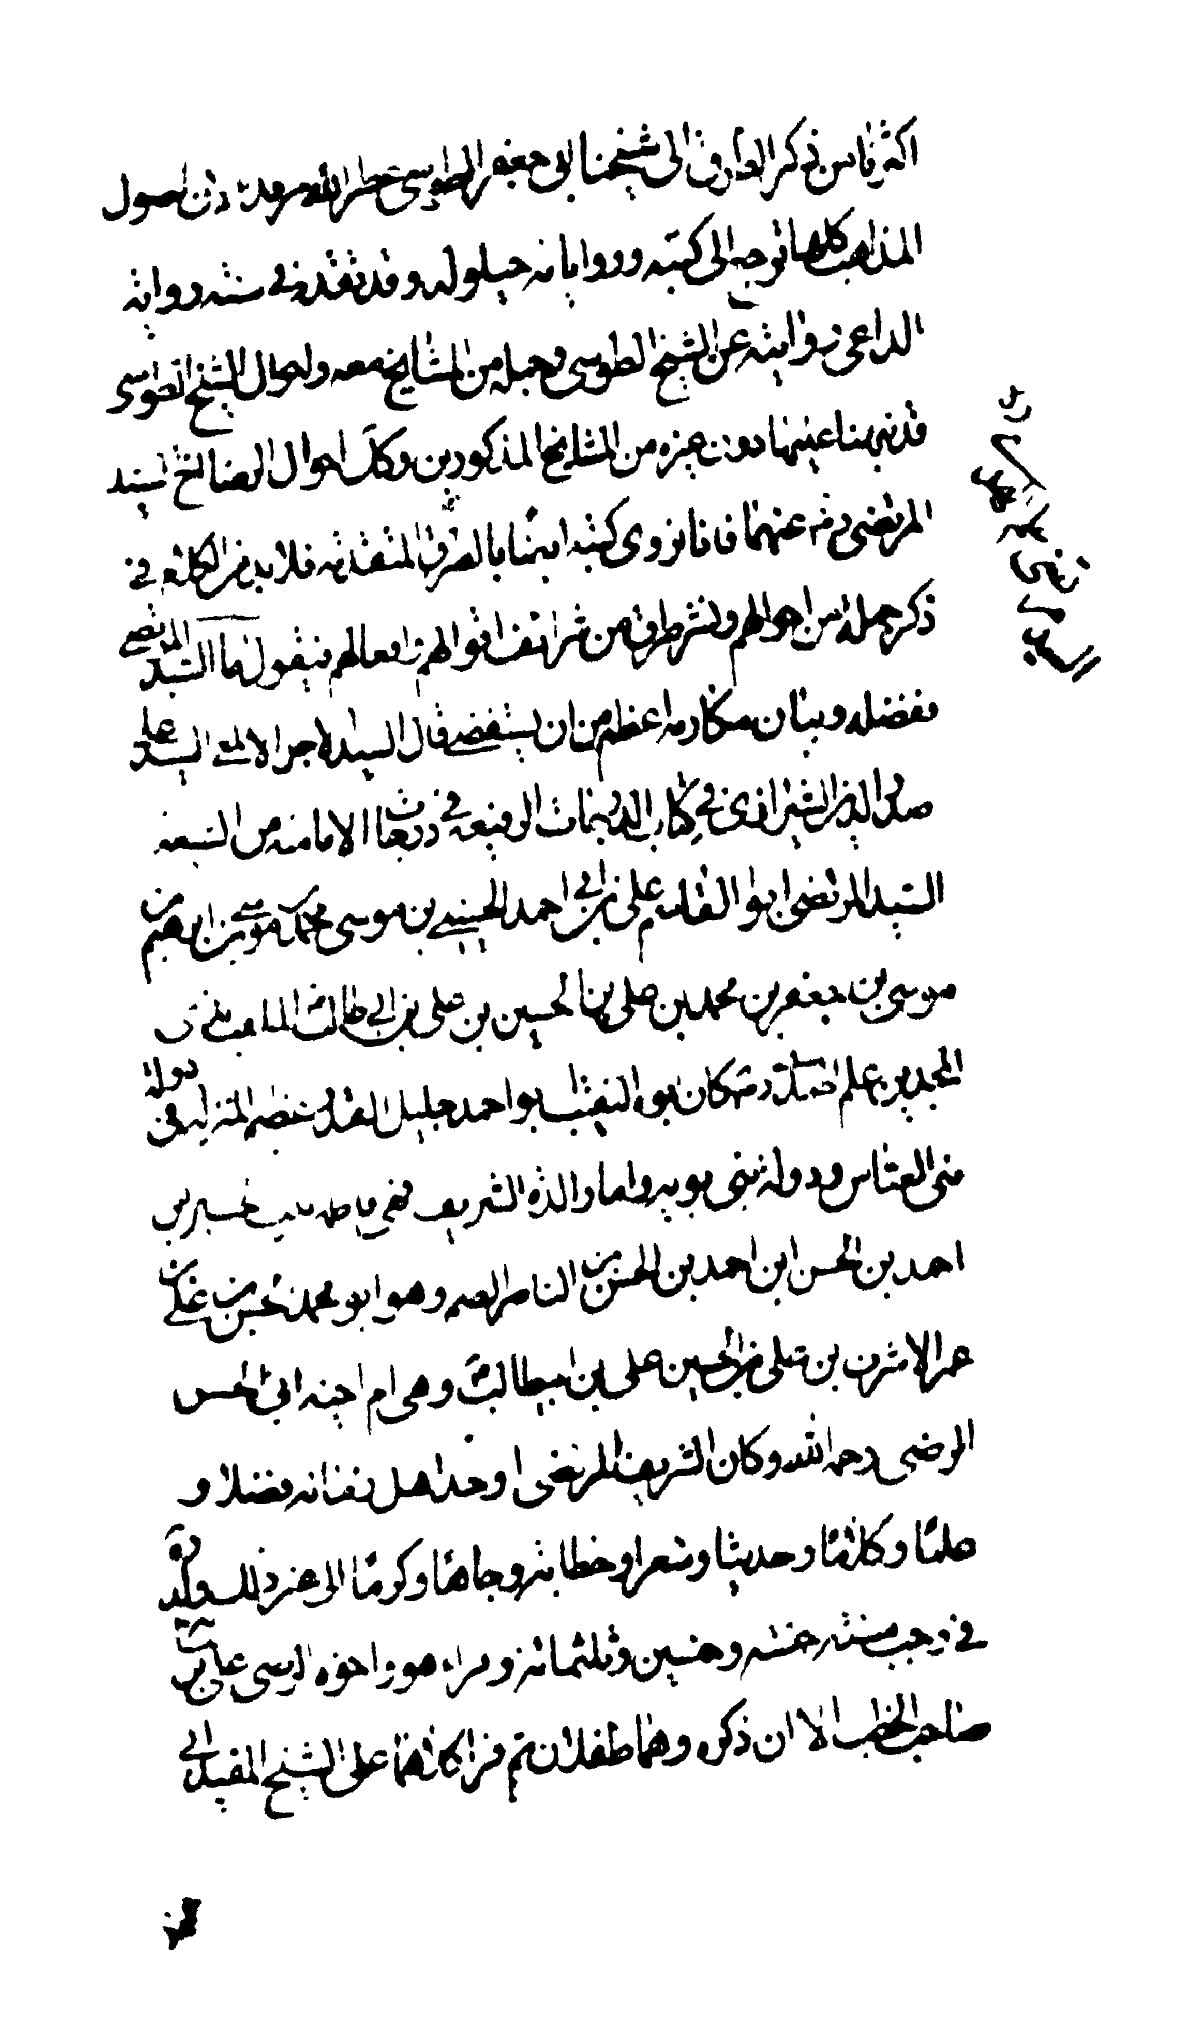 اكثرنا من ذكر الطرق الى شيخنا ابى جعفر الطوسى عطر الله مرقده لان اصول
المذاهب كلها ترجع الى كتبه ورواياته وقد تقدم فى سنته رواية
الداعى روايته عن الشيخ الطوسى وجملة من المشايخ معه واحوال الشيخ الطوسى
قد نبهنا عليها دون غيره من المشايخ المذكورين وكك احوال السيد
المرتضى رضى عنهما فانا نروى كتبه ايضا بالطرق المتقدمة فلا بد من الكلام فى
ذكر جملة من احوالهم ونشر طرف من شرائف اقوالهم وافعالهم فنقول اما السيد المرتضى
ففضله وبيان مكارمه اعظم من ان يستقصى قال السيد الاجل الالمعى السيد على
صدر الدين الشيرازى فى كتاب الدرجات الرفيعة فى درجات الامامية من الشيعة
السيد المرتضى ابو القاسم على بن ابى احمد الحسين بن موسى بن محمد بن موسى بن ابراهيم بن
موسى بن جعفر بن محمد بن على بن الحسين بن على بن ابى طالب الملقب بذى
المجدين علم الهدى كان ابوه النقيب ابو احمد جليل القدر عظيم المنزلة فى دولة
بنى العباس ودولة بنى بويه واما والدة الشريف فهى فاطمة بنت الحسين بن
احمد بن الحسن ابن احمد بن الحسن بن الناصر الاصم وهو ابو محمد الحسن بن على بن
عمر الاشرف بن على بن الحسين على بن ابيطالب وهى ام اخيه ابى الحسن
الرضى رحمه الله وكان الشريف المرتضى اوحد اهل زمانه فضلا و
علما وكلاما وحديثا وشعرا وخطابة وجاها وكرما الى غير ذلك ولد
فى رجب سنة خمسة وخمسين وثلثمائة وقراء هو واخوه الرضى على ابن نباتة
صاحب الخطب الا ان ذكره وهما طفلان ثم قرا كلاهما على الشيخ المفيد ابى
السيد المرتضى